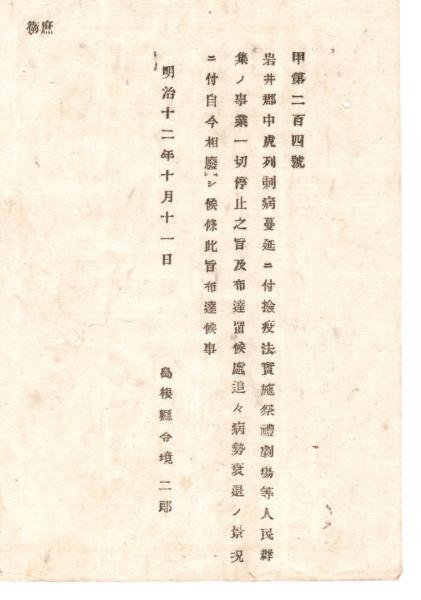 庶衛
甲第二百四號
岩井郡中虎列剌病蔓延ニ付撿疫法實施祭禮劇塲等人民群
集ノ事業一切停止之旨及布達置候處追々病勢衰退ノ景況
ニ付自今相廢シ候條此旨布達候事
明治十二年十月十一日
島根縣令境二郎